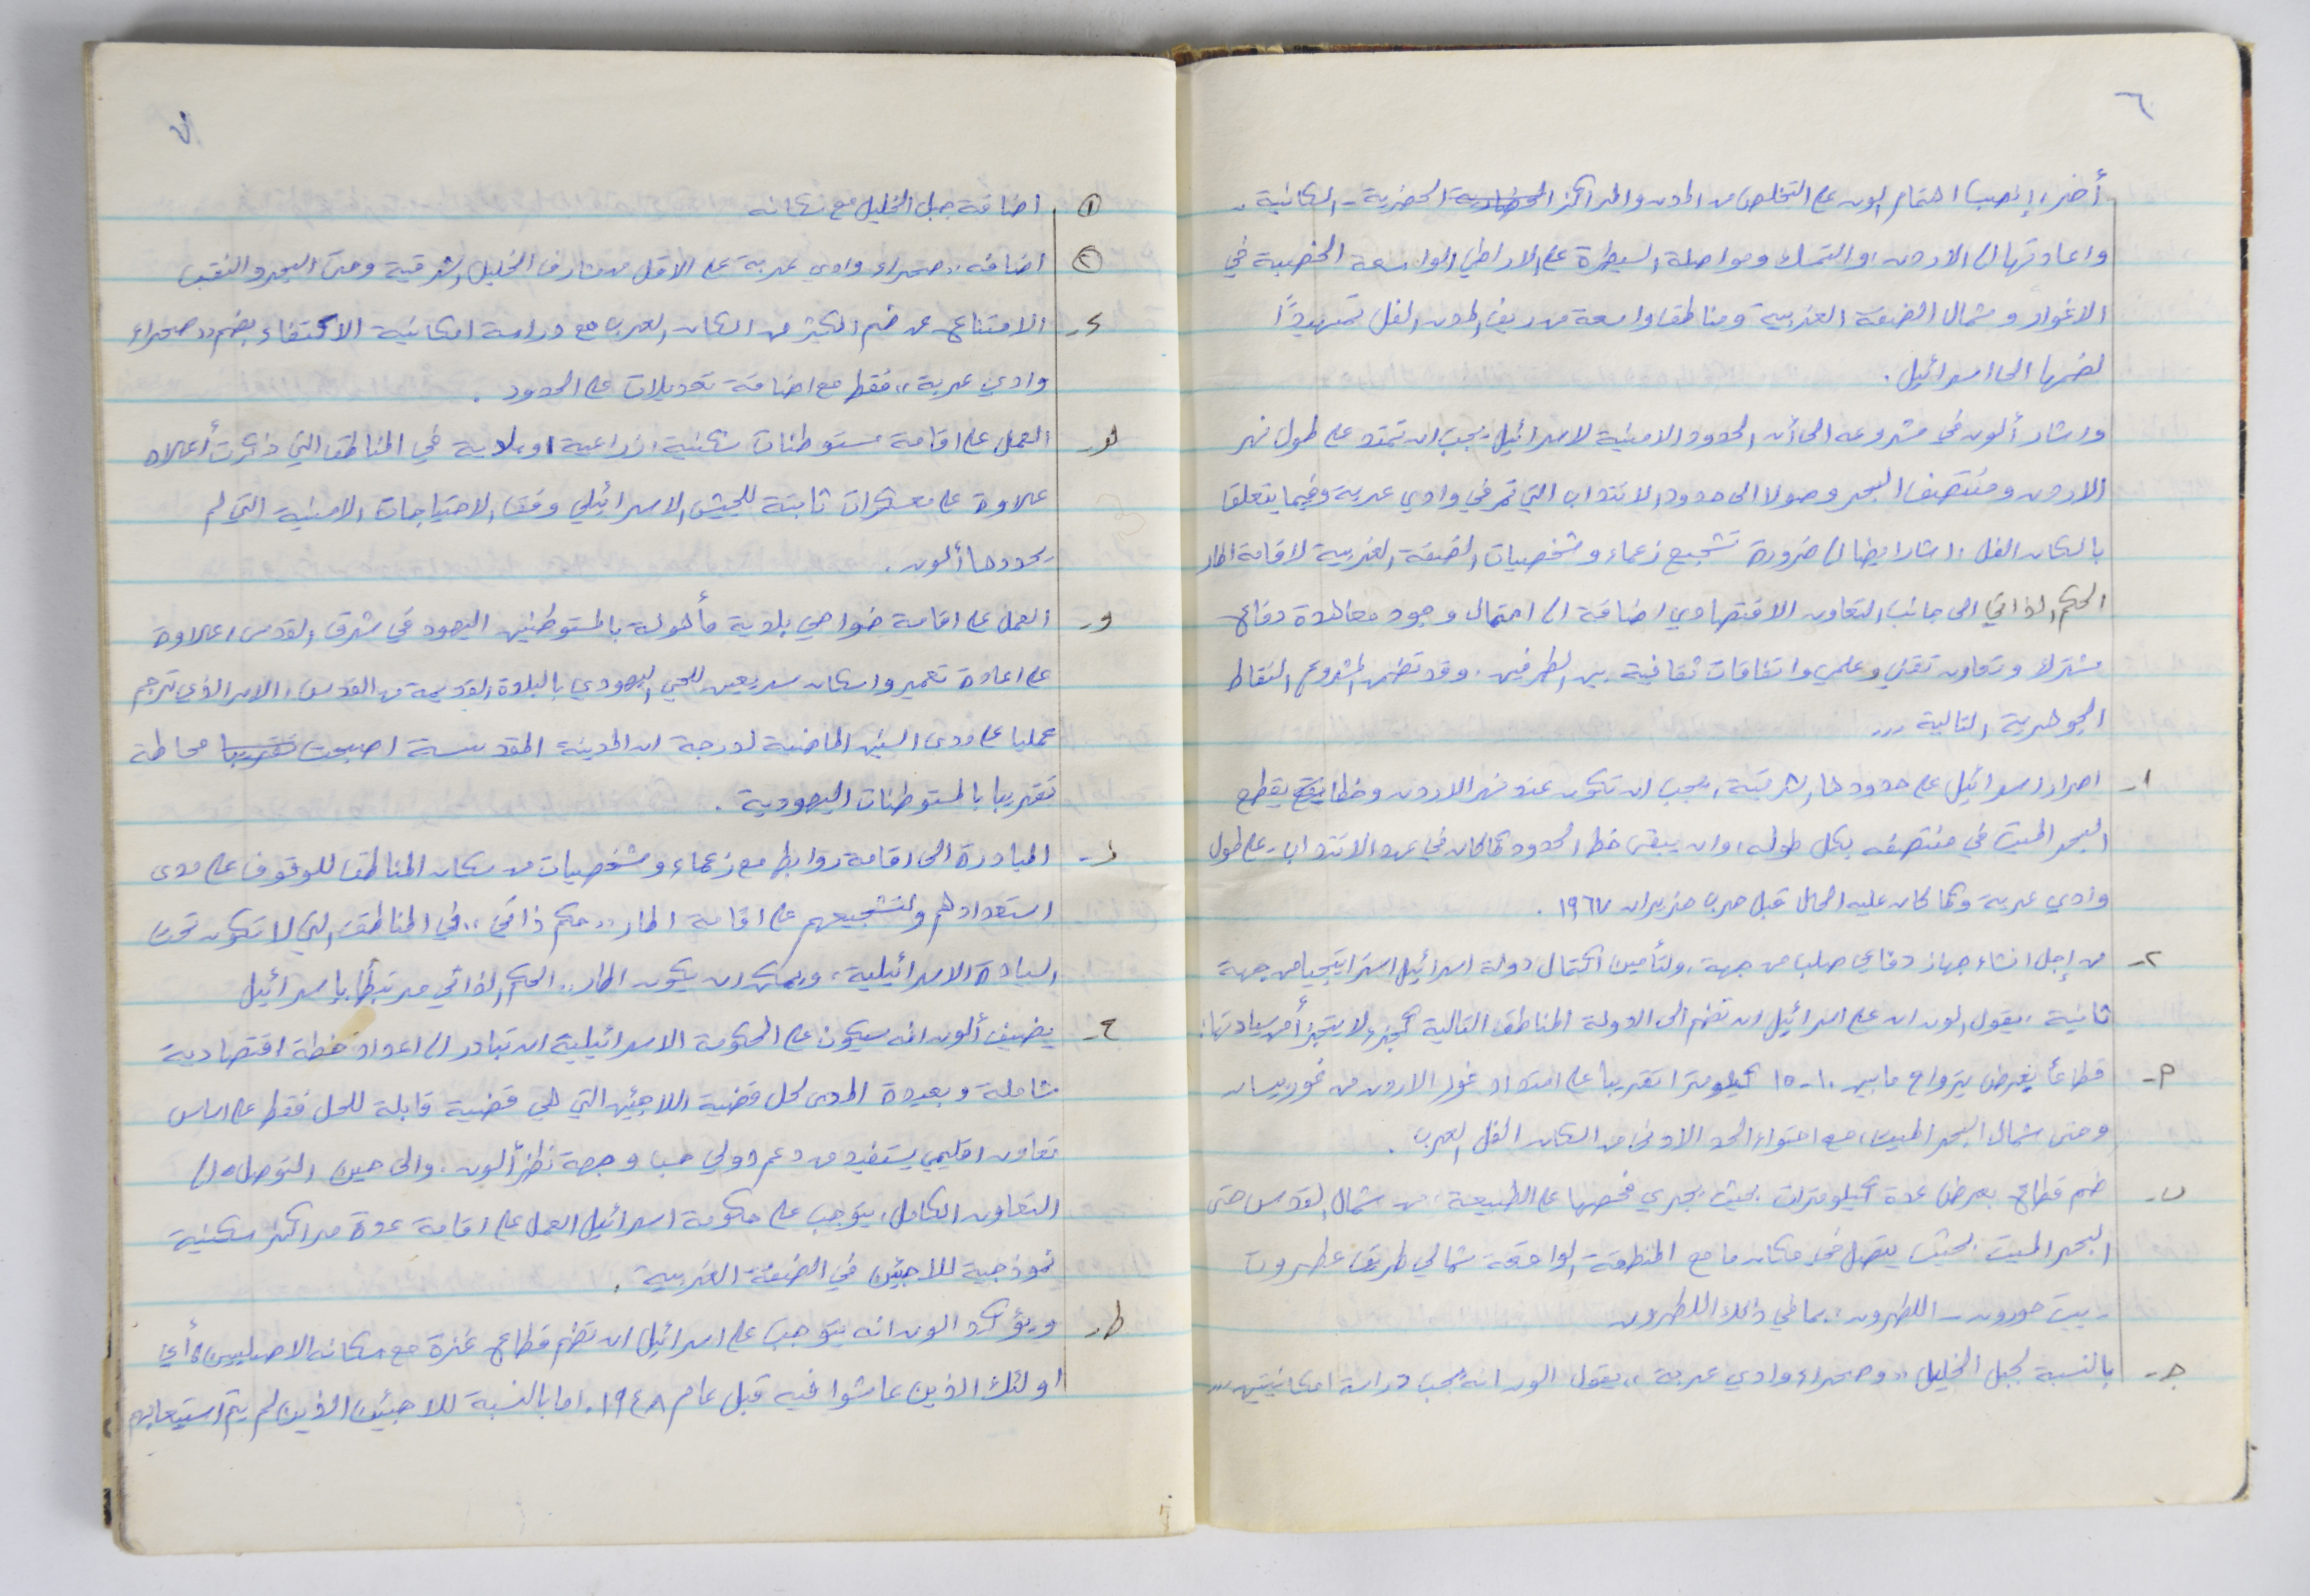 ٦
أخر، إنصب اهتمام ألون على التخلص من المدن والمراكز الحضارية الحضرية - السكانية.
واعادتها الى الاردن، والتمسك ومواصلة السيطرة على الاراضي الواسعة الخصبة في
الاغوار وشمال الضفة الغربية ومناطق واسعة من ريف المدن الفل تمهيداً
لضمها الى اسرائيل.
واشار ألون في مشروعه الى أن الحدود الامنية لاسرائيل يجب ان تمتد على طول نهر
الاردن ومنتصف البحر وصولا الى حدود الانتداب التي تمر في وادي عربة وفيما يتعلق
بالسكان الفل، اشار ايضا الى ضرورة تشجيع زعماء وشخصيات الضفة الغربية لاقامة اطار
الحكم الذاتي الى جانب التعاون الاقتصادي اضافة الى احتمال وجود معاهدة دفاع
مشترك وتعاون تقني وعلمي واتفاقات ثقافية بين الطرفين. وقد تضمن المشروع النقاط
الجوهرية التالية ...
١- اصرار اسرائيل على حدودها الشرقية، يجب ان تكون عند نهر الاردن وخطا يقطع
البحر الميت في منتصفه بكل طوله، وان يبقى خط الحدود كما كان في عهد الانتداب، على طول
وادي عربة وكما كان عليه الحال قبل حرب حزيران ١٩٦٧.
٢- من إجل انشاء جهاز دفاعي صلب من جهة، ولتأمين اكتمال دولة اسرائيل استراتيجيا من جهة
ثانية، يقول الون ان على اسرائيل ان تضم الى الدولة المناطق التالية كجزء لا يتجزأ من سيادتها:
أ- قطاعاً بعرض يتراوح ما بين ١٠-١٥ كيلومترا تقريبا على امتداد غور الاردن من غور بيسان
وحتى شمال البحر الميت، مع احتواء الحد الادنى من السكان الفل العرب.
ب- ضم قطاع بعرض عدة كيلومترات بحيث يجري فحصها على الطبيعة، من شمال القدس حتى
البحر الميت بحيث يتصل في مكان ما مع المنطقة الواقعة شمالي طريق عطروت
- بيت حورون - اللطرون، بما في ذلك اللطرون
ج- بالنسبة لجبل الخليل "وصحراء وادي عربة"، يقول الون انه يجب دراسة امكانيتين ...
٧
① اضافة جبل الخليل مع سكانه
② اضافة "صحراء وادي عربة" على الاقل من مشارف الخليل الشرقية وحتى البحر والنقب
د- الامتناع عن ضم الكثير من السكان العرب مع دراسة امكانية الاكتفاء بضم "صحراء
وادي عربة" فقط مع اضافة تعديلات على الحدود.
هـ- العمل على اقامة مستوطنات سكنية، زراعية او بلدية في المناطق التي ذكرت أعلاه
علاوة على معسكرات ثابتة للجيش الاسرائيلي وفق الاحتياجات الامنية التي لم
يحددها ألون.
و- العمل على اقامة ضواحي بلدية مأهولة بالمستوطنين اليهود في شرق القدس، علاوة
على اعادة تعمير واسكان سريعين للحي اليهودي بالبلدة القديمة من القدس، الامر الذي ترجم
عمليا على مدى السنين الماضية لدرجة ان المدينة المقدسة اصبحت تقريبا محاطة
تقريبا بالمستوطنات اليهودية.
ز- المبادرة الى اقامة روابط مع زعماء وشخصيات من سكان المناطق للوقوف على مدى
استعدادهم ولتشجيعهم على اقامة اطار "حكم ذاتي" في المناطق التي لا تكون تحت
السيادة الاسرائيلية، ويمكن ان يكون اطار "الحكم الذاتي مرتبطاً بإسرائيل
ح- يضيف ألون انه سيكون على الحكومة الاسرائيلية ان تبادر الى اعداد خطة اقتصادية
شاملة وبعيدة المدى لحل قضية اللاجئين التي هي قضية قابلة للحل فقط على اساس
تعاون اقليمي يستفيد من دعم دولي حسب وجهة نظر ألون. والى حين التوصل الى
التعاون الكامل، يتوجب على حكومة اسرائيل العمل على اقامة عدة مراكز سكنية
نموذجية للاجئين في الضفة الغربية.
ط- ويؤكد الون انه يتوجب على اسرائيل ان تضم قطاع غزة مع سكانه الاصليين، أي
اولئك الذين عاشوا فيه قبل عام ١٩٤٨. اما بالنسبة للاجئين الذين لم يتم استيعابهم